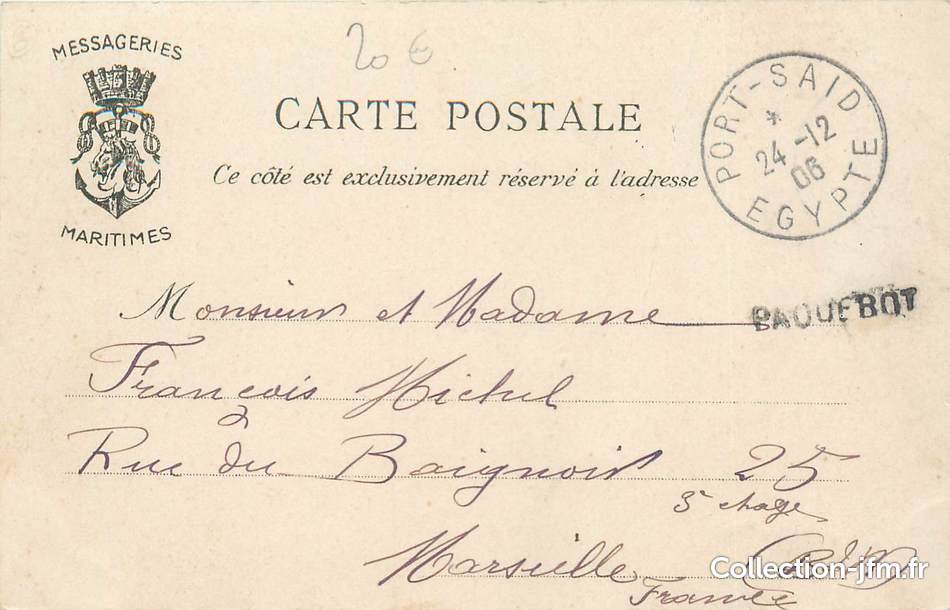 20 €
MESSAGERIES
MARITIMES
CARTE POSTALE
Ce côté est exclusivement réservé à l'adresse
PORT-SAID
24-12
06
EGYPTE
PAQUEBOT
Monsieur et Madame
François Michel
Rue du Baignoir 25
3e étage
Marseille
France
Collection-jfm.fr